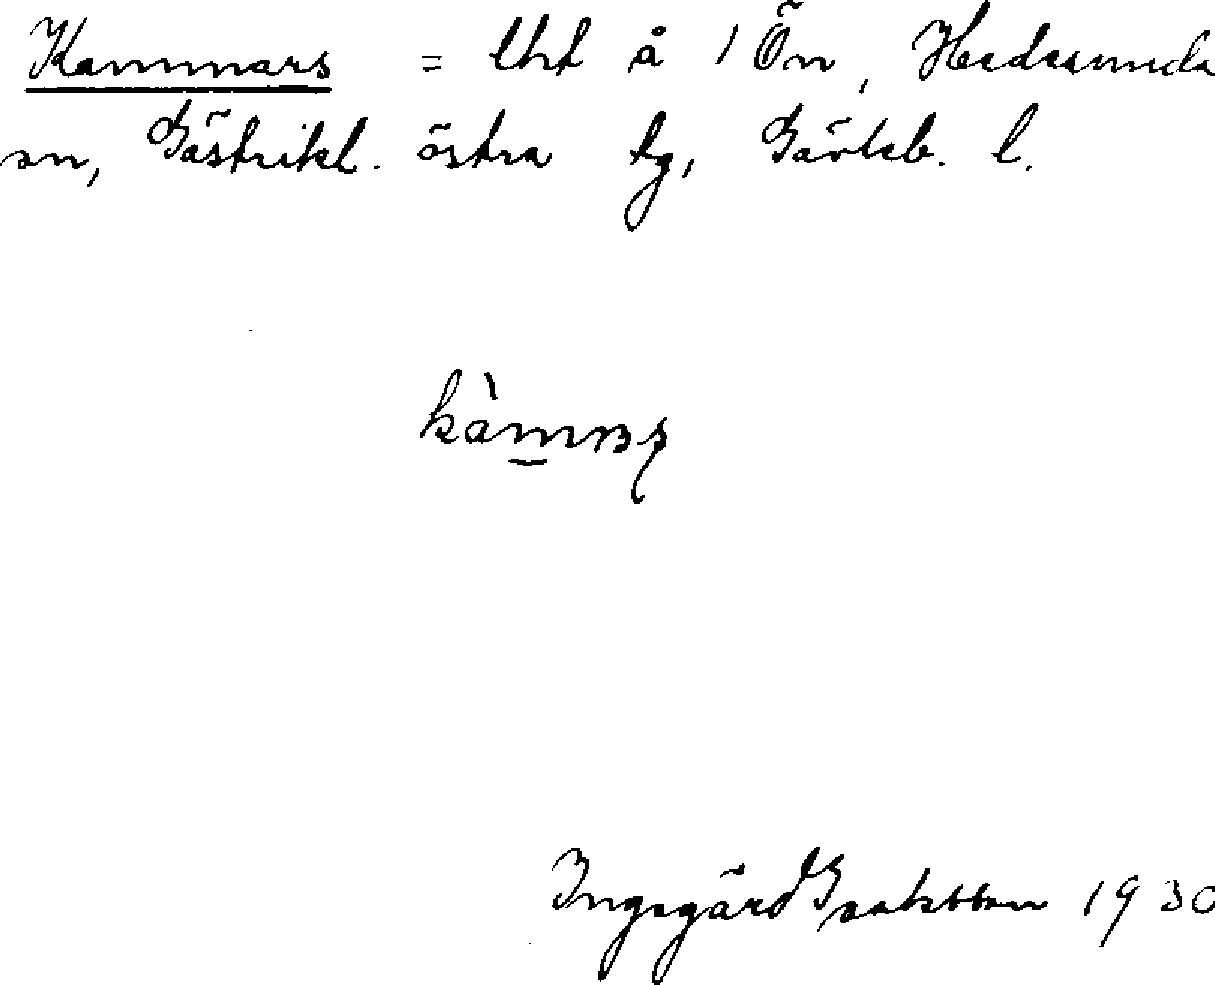 Kammars = Uht å 1 Ön, Hedesunda
sn, Gästrikl. östra tg, Gävleb. l.
Ingegärd Isaksson 1930